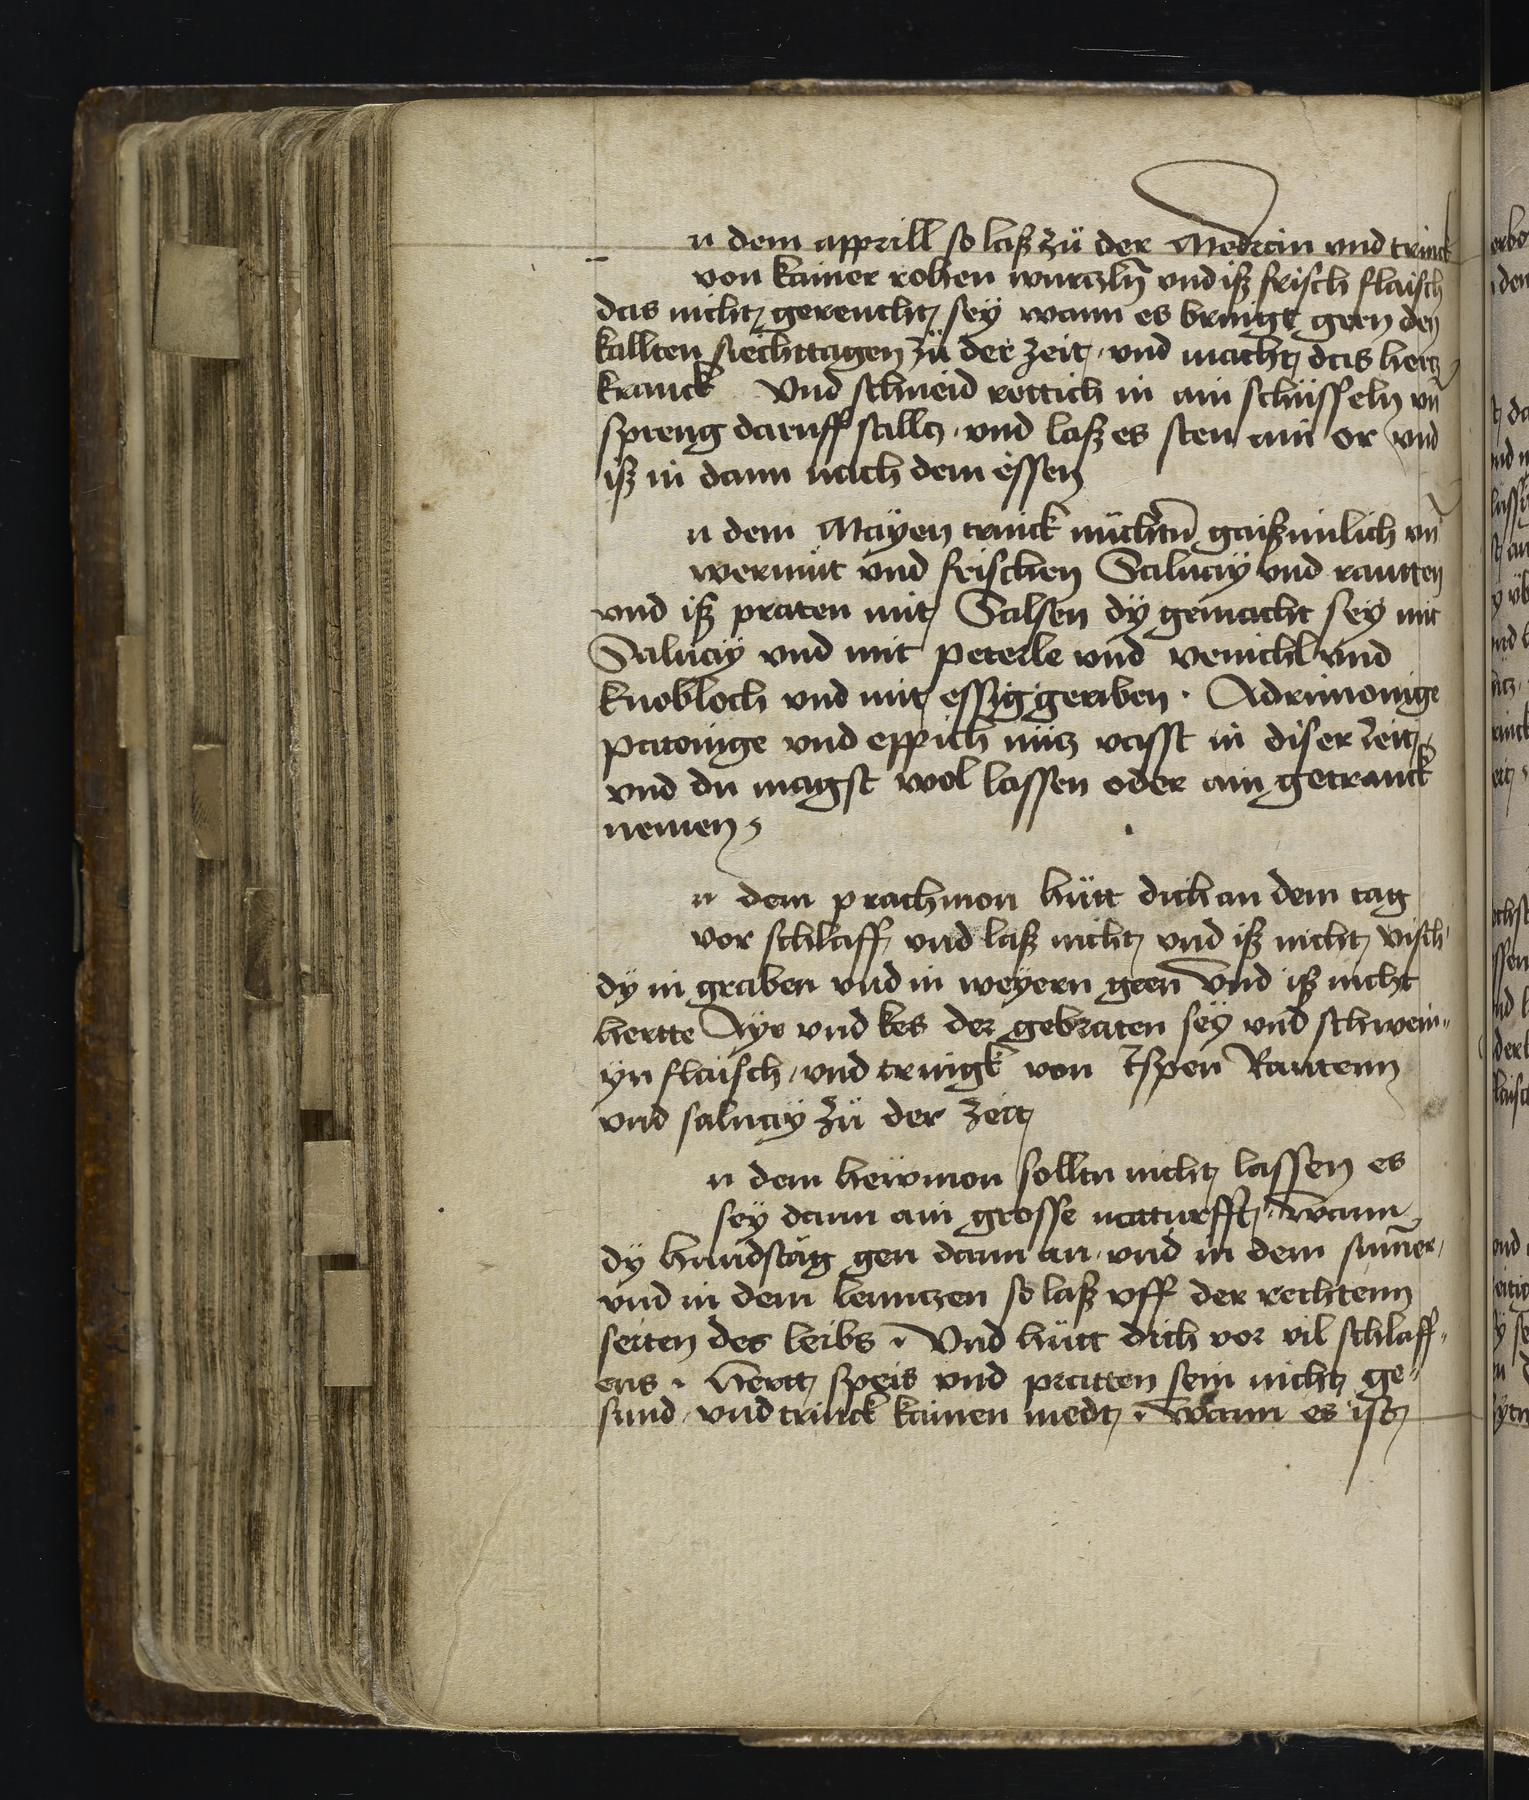 n dem apprill so laß zü der Medicin vnd trinck
von kainer rohen wurczln̄ vnd iß frisch flaisch
das nicht gereucht sey wann es bringt geen den
kallten siechttagen zü der zeit · vnd macht das hercz
kranck Vnd schneid rettich in ain schüsseln vn̄
spreng daruff sallcz · vnd laß es sten ain or vnd
iß in dann nach dem essen
n dem Mayen trinck nüchtn̄ gaißmilich vn̄
wermüt vnd frischen Saluay vnd rautten
vnd iß praten mit Salsen dÿ gemacht seÿ mit
Saluaÿ vnd mit peterle vnd venichl vnd
knobloch vnd mit essig geriben · Adrimonige
patonige vnd eppich nücz vasst in diser zeit
vnd du magst wol lassen oder ain getranck
nemen
n dem prachmon hütt dich an dem tag
vor schlaff vnd laß nicht vnd iß nicht visch
dÿ in graben vnd in weyern geen Vnd iß nicht
hertte Ayr vnd kes der gebraten seÿ vnd schwein„
yn flaisch / vnd tringk von Ispen Rautenn
vnd saluaÿ zü der zeit
n dem hewmon solltu nicht lassen es
seÿ dann ain grosse naturfft · wann
dÿ hundstäg gen dann an · vnd in dem sum̄er /
vnd in dem lenntzen so laß vff der rechtenn
seiten des leibs · Vnd hütt dich vor vil schlaff„
ens · hertt speis vnd pratten sein nicht ge„
sund / vnd trinck kainen medt · wann es ist